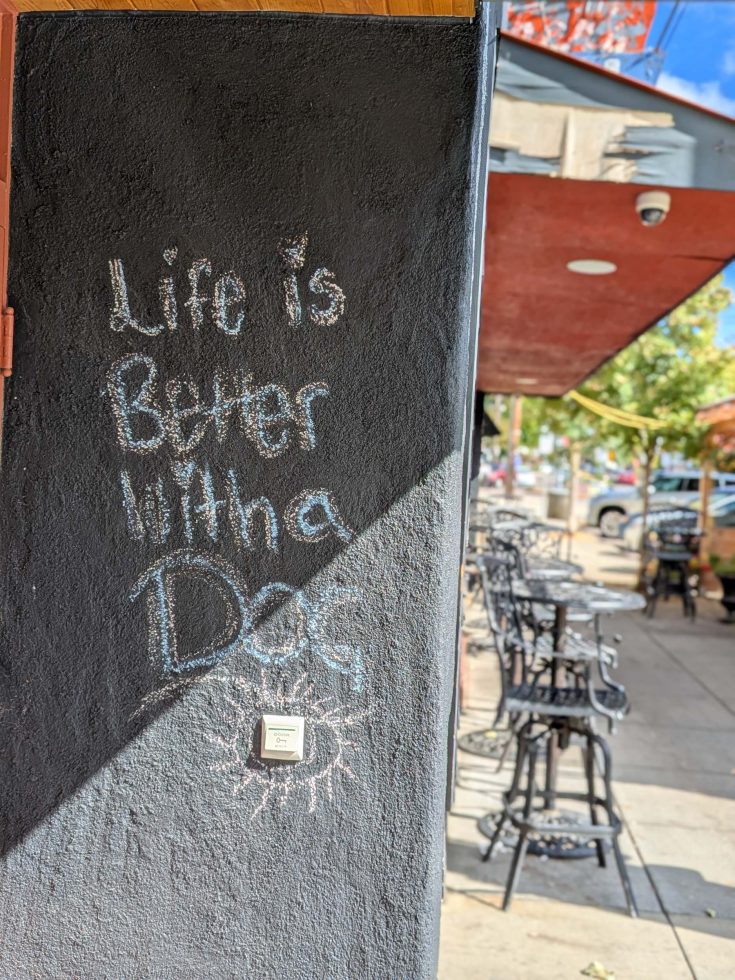 Life is
Better
With a
Dog